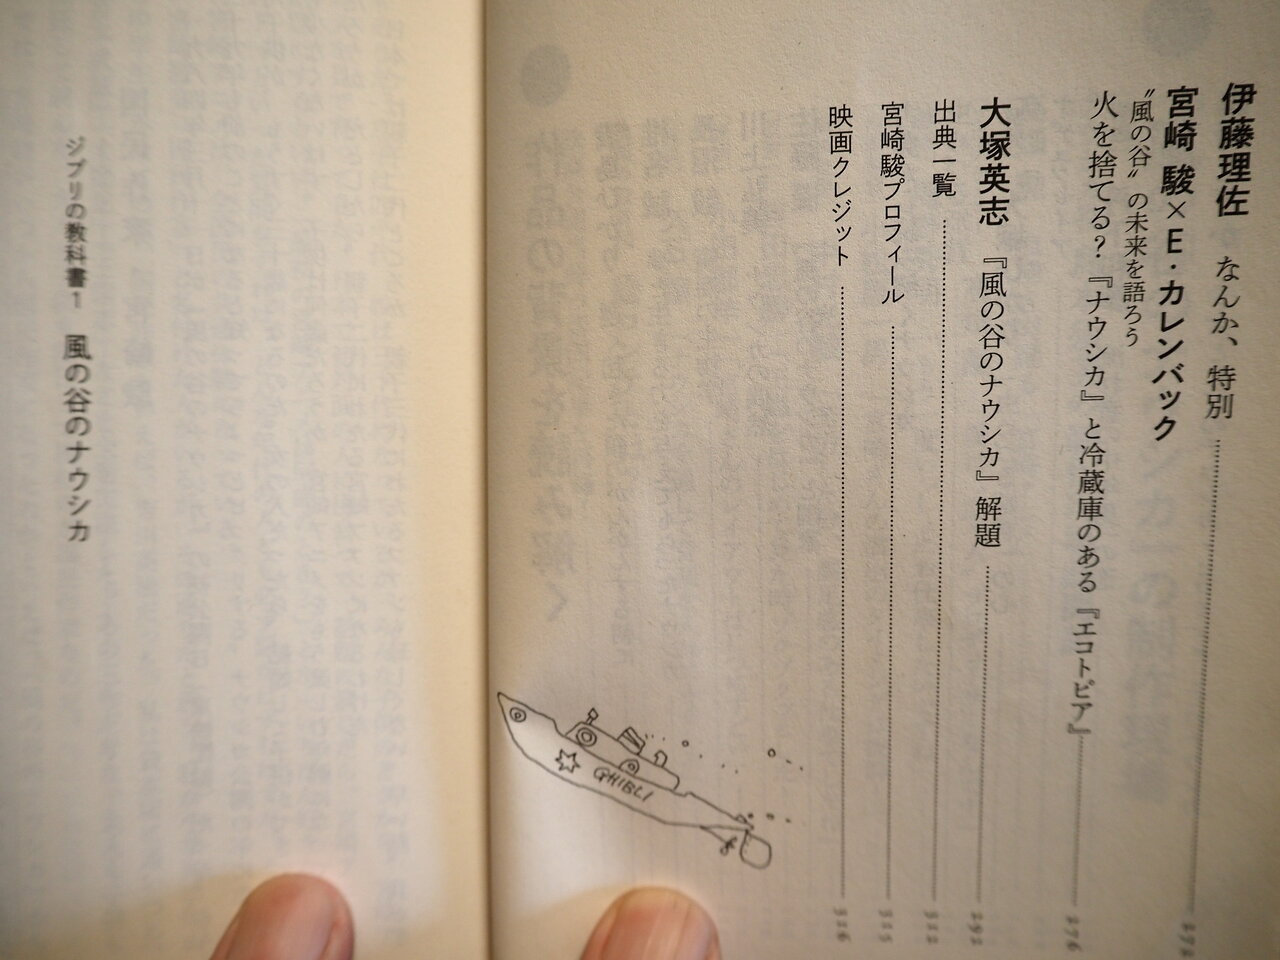 伊藤理佐　なんか、特別 272
宮崎 駿×E・カレンバック
〝風の谷〟の未来を語ろう
火を捨てる？『ナウシカ』と冷蔵庫のある『エコトピア』 276
大塚英志　『風の谷のナウシカ』解題 292
出典一覧 322
宮崎駿プロフィール 325
映画クレジット 326
GHIBLI
ジブリの教科書1　風の谷のナウシカ